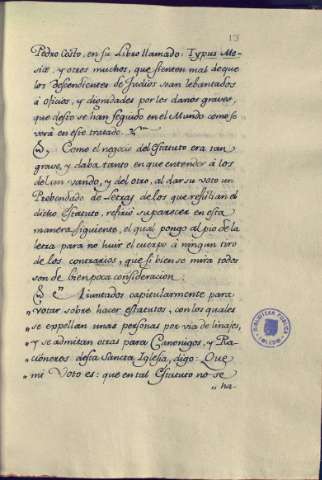 13
Pedro Costo, en su Libro llamado: Typus Me-
siæ, y otros muchos, que sienten mal de que
los descendientes de Judios sean lebantados
á oficios, y dignidades por los danos graves,
que desto se han seguido en el Mundo como se
verá en este tratado.
Como el negocio del Estatuto era tan
grave, y daba tanto en que entender á los
del un vando, y del otro, al dar su voto un
Prebendado de Letras de los que resistian el
dicho Estatuto, refirió su parecer en esta
manera siguiente, el qual pongo al pie de la
letra para no huir el cuerpo á ningun tiro
de los contrarios, que si bien se mira todos
son de bien poca consideracion:
Juntados capitularmente para
votar sobre hacer estatutos, con los quales
se expellan unas personas por via de linajes
y se admitan otras para Canonigos, y Ra-
cioneros desta Sancta Iglesia, digo: Que
mi Voto es: que en tal Estatuto no se
ha-
BIBLIOTECA PUBLICA
TOLEDO